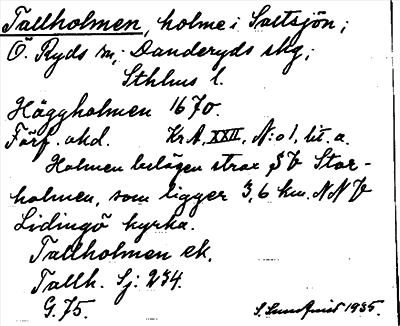 Tallholmen, holme i Saltsjön;
Ö. Ryds sn; Danderyds skg;
Sthlms l.
Häggholmen 1670.
Förf. okd. KrA, XXII, N:o 1, lit. a.
Holmen belägen strax SV Stor-
holmen, som ligger 3,6 km. NNV
Lidingö kyrka.
Tallholmen ek.
Tallh. Sj: 234.
G. 75. S. Lundqvist 1935.